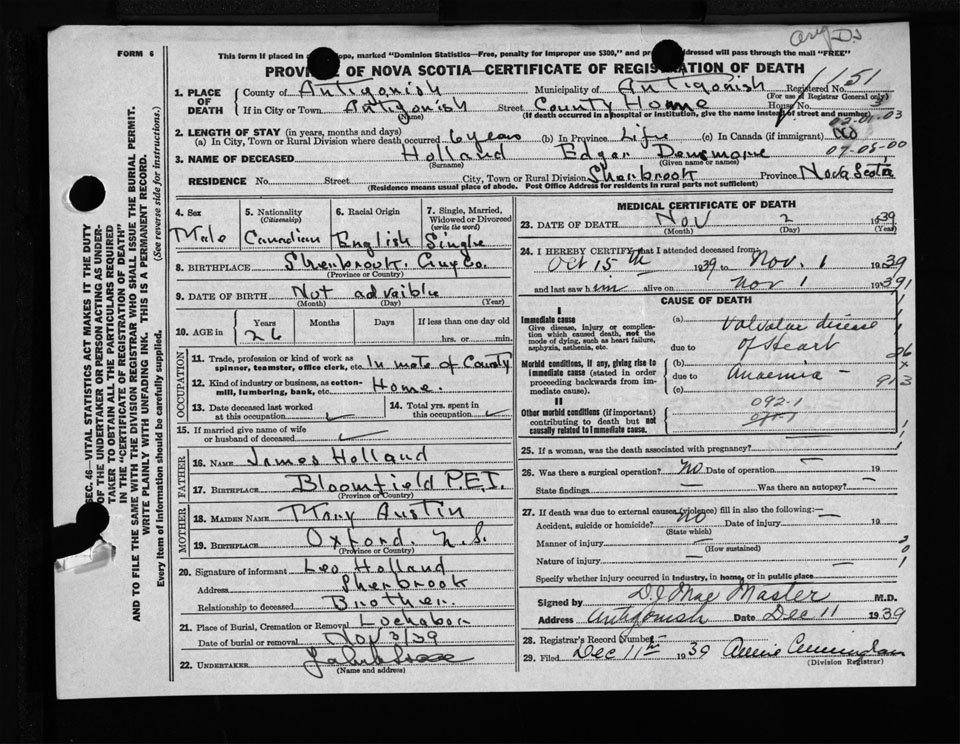 Orig D.J
FORM 6
This form if placed in ope, marked "Dominion Statistics—Free, penalty for improper use $300," and p addressed will pass through the mail "FREE"
PROVINCE OF NOVA SCOTIA—CERTIFICATE OF REGISTRATION OF DEATH
1. PLACE OF DEATH
County of Antigonish Municipality of Antigonish Registered No. 1151
(For use of Registrar General only)
If in City or Town Antigonish Street County Home House No. 3
(Name) (If death occurred in a hospital or institution, give the name instead of street and number)
03-01-03
2. LENGTH OF STAY (in years, months and days)
(a) In City, Town or Rural Division where death occurred 6 years (b) In Province Life (c) In Canada (if immigrant) No
07-08-00
3. NAME OF DECEASED Holland Edgar Densmore
(Surname) (Given name or names)
RESIDENCE No. Street City, Town or Rural Division Sherbrook Province Nova Scotia
(Residence means usual place of abode. Post Office Address for residents in rural parts not sufficient)
4. Sex 5. Nationality (Citizenship) 6. Racial Origin 7. Single, Married, Widowed or Divorced (write the word)
Male Canadian English Single
8. BIRTHPLACE Sherbrook. Guy Co.
(Province or Country)
9. DATE OF BIRTH Not advisible
(Month) (Day) (Year)
10. AGE in Years Months Days If less than one day old
26 hrs. or min.
OCCUPATION
11. Trade, profession or kind of work as spinner, teamster, office clerk, etc. Inmate of County
12. Kind of industry or business, as cotton-mill, lumbering, bank, etc. Home.
13. Date deceased last worked at this occupation ✓
14. Total yrs. spent in this occupation ✓
15. If married give name of wife or husband of deceased ✓
FATHER
16. NAME James Holland
17. BIRTHPLACE Bloomfield P.E.I.
(Province or Country)
MOTHER
18. MAIDEN NAME Mary Austin
19. BIRTHPLACE Oxford. N.S.
(Province or Country)
20. Signature of informant Leo Holland
Address Sherbrook
Relationship to deceased Brother.
21. Place of Burial, Cremation or Removal Lochabor
Date of burial or removal Nov 3/39
22. UNDERTAKER
(Name and address)
MEDICAL CERTIFICATE OF DEATH
23. DATE OF DEATH Nov 2 1939
(Month) (Day) (Year)
24. I HEREBY CERTIFY that I attended deceased from:
Oct 15th 1939 to Nov. 1 1939
and last saw him alive on Nov 1 1939
CAUSE OF DEATH
I
Immediate cause
Give disease, injury or complication which caused death, not the mode of dying, such as heart failure, asphyxia, asthenia, etc.
(a) Valvular disease
due to of Heart
Morbid conditions, if any, giving rise to immediate cause (stated in order proceeding backwards from immediate cause).
(b)
due to Anaemia —
(c)
II
Other morbid conditions (if important) contributing to death but not causally related to immediate cause.
092-1
913
25. If a woman, was the death associated with pregnancy?
26. Was there a surgical operation? No Date of operation — 19
State findings — Was there an autopsy? —
27. If death was due to external causes (violence) fill in also the following:—
Accident, suicide or homicide? No Date of injury — 19
(State which)
Manner of injury —
(How sustained)
Nature of injury —
Specify whether injury occurred in industry, in home, or in public place
Signed by D J Mac Master M.D.
Address Antigonish Date Dec 11 1939
28. Registrar's Record Number
29. Filed Dec 11th 1939 Annie Cunningham
(Division Registrar)
SEC. 46—VITAL STATISTICS ACT MAKES IT THE DUTY
OF THE UNDERTAKER OR PERSON ACTING AS UNDER-
TAKER TO OBTAIN ALL THE PARTICULARS REQUIRED
IN THE "CERTIFICATE OF REGISTRATION OF DEATH"
AND TO FILE THE SAME WITH THE DIVISION REGISTRAR WHO SHALL ISSUE THE BURIAL PERMIT.
WRITE PLAINLY WITH UNFADING INK. THIS IS A PERMANENT RECORD.
Every item of information should be carefully supplied. (See reverse side for instructions.)